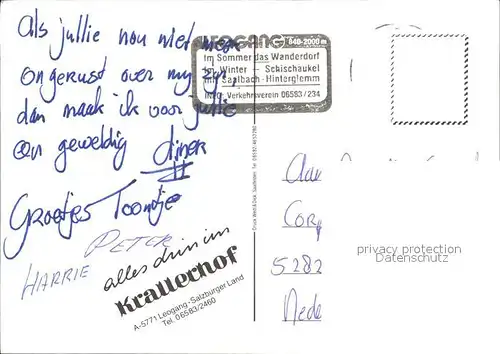 Als jullie nou niet meer
ongerust over my zyn,
dan maak ik voor jullie
een geweldig diner
Groetjes Toontje
PETER
HARRIE
alles drin im
Krallerhof
A-5771 Leogang-Salzburger Land
Tel. 06583/2460
LEOGANG 840-2000 m
Im Sommer das Wanderdorf
im Winter - Schischaukel
mit Saalbach-Hinterglemm
Verkehrsverein 06583/234
Aan
Cor
5282
Nede
privacy protection
Datenschutz